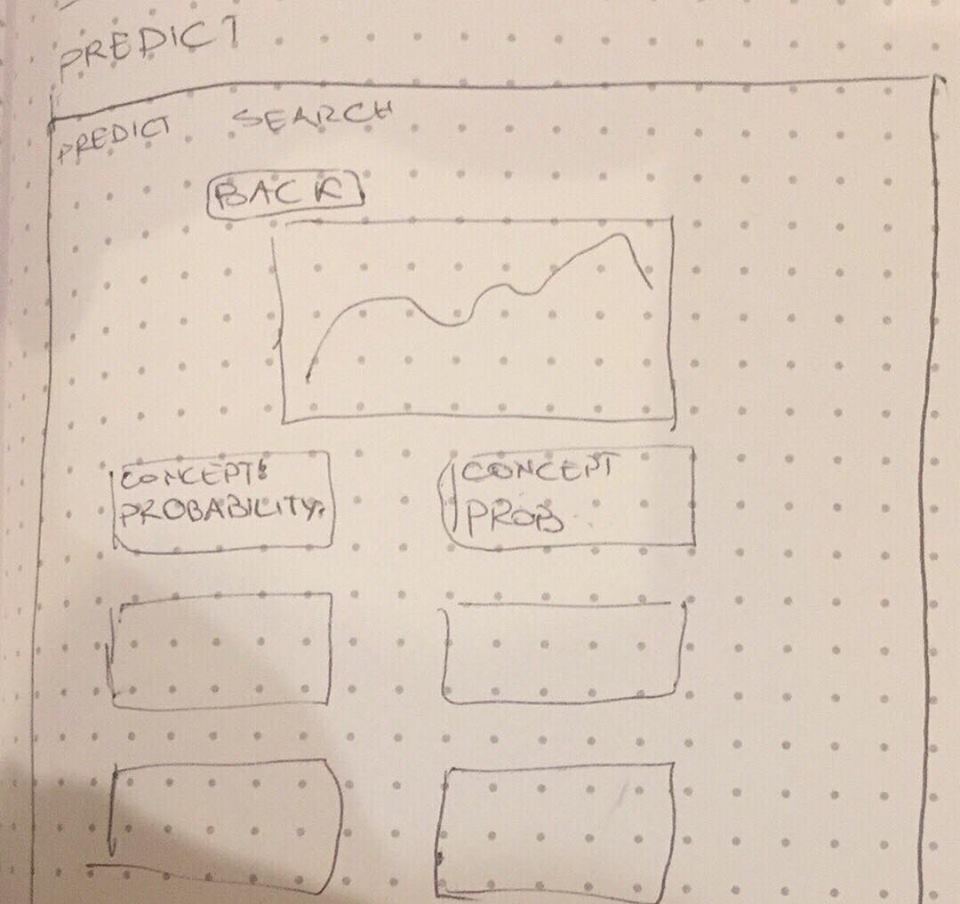 PREDICT
PREDICT SEARCH
BACK
CONCEPT:
PROBABILITY:
CONCEPT
PROB